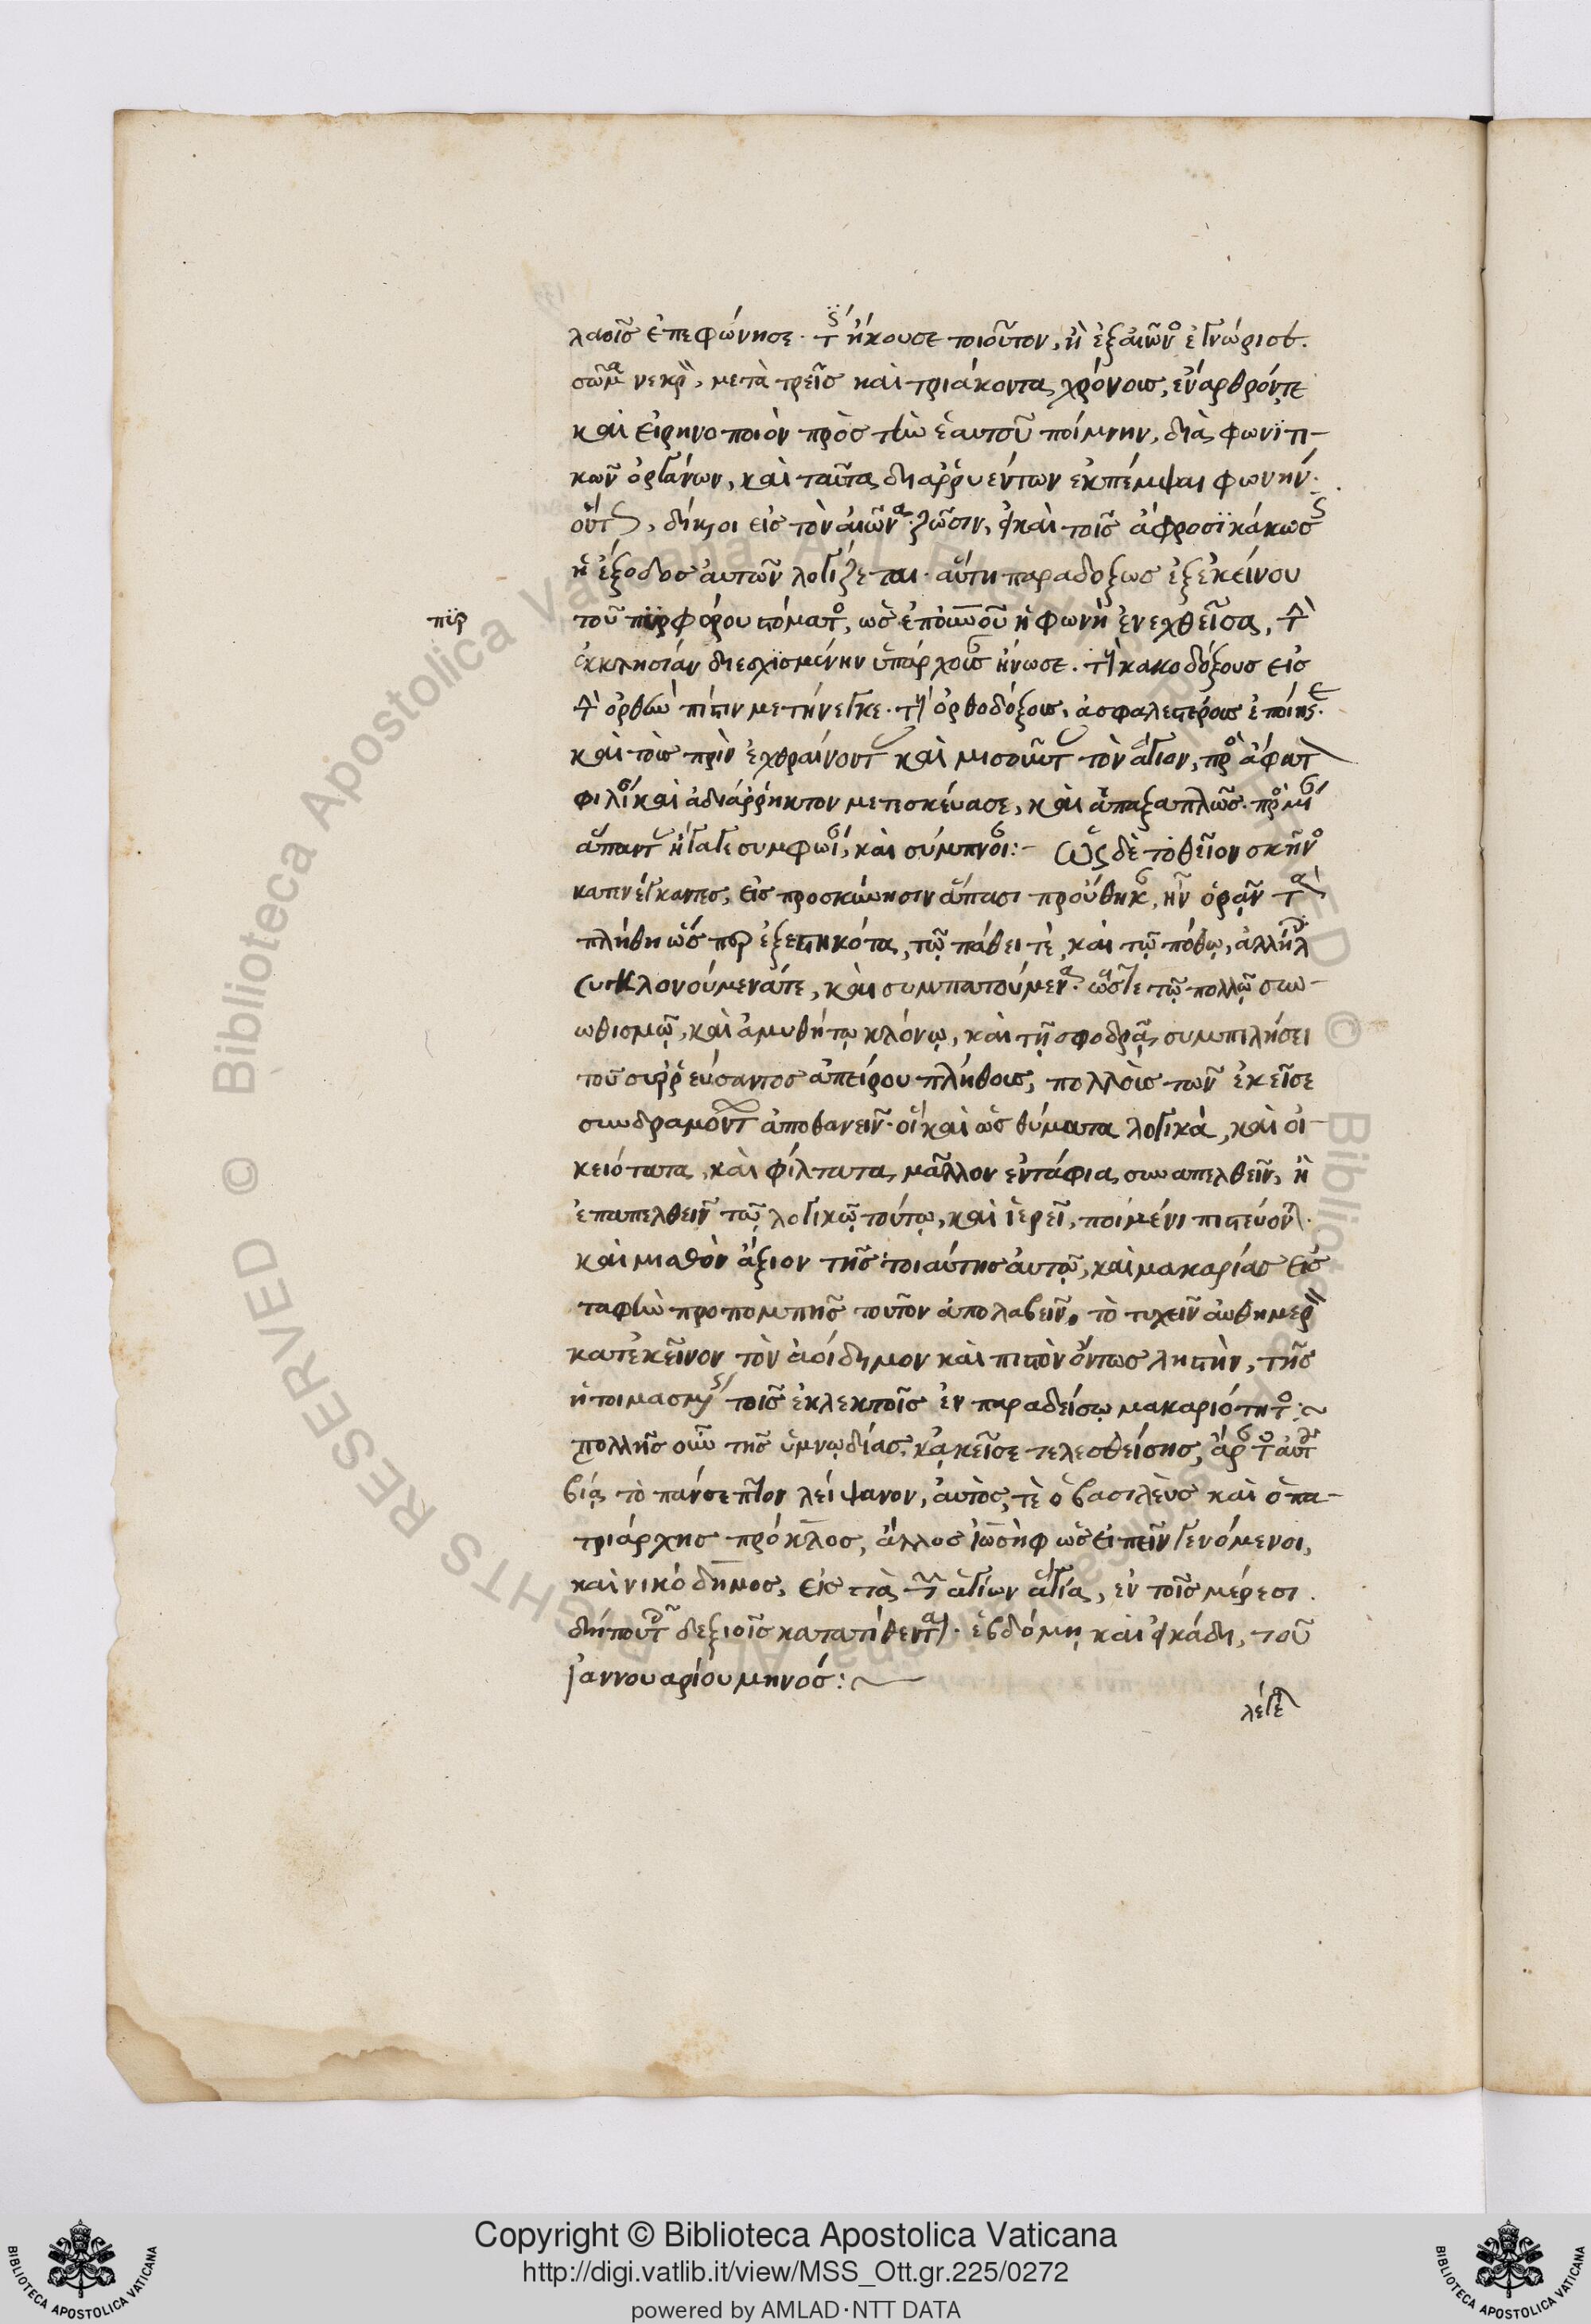 λαοῖς ἐπεφώνησε. τίς ἤκουσε τοιοῦτον, ἢ ἐξ αἰῶνος ἐγνώρισε.
σῶμα νεκρὸν, μετὰ τρεῖς καὶ τριάκοντα χρόνους, ἐναρθρόν τε
καὶ εἰρηνοποιὸν πρὸς τὴν ἑαυτοῦ ποίμνην, διὰ φωνητι-
κῶν ὀργάνων, καὶ ταῦτα διαρρυέντων ἐκπέμψαι φωνήν.
οὕτως, δίκαιοι εἰς τὸν αἰῶνα ζῶσιν, εἰ καὶ τοῖς ἄφροσι κάκωσις
ἡ ἔξοδος αὐτῶν λογίζεται. αὕτη παραδόξως ἐξ ἐκείνου
πϋρ
τοῦ πϋρφόρου στόματος, ὡς εἰπεῖν οὖν ἡ φωνὴ ἐνεχθεῖσα, τὴν
ἐκκλησίαν διεσχισμένην ὑπάρχουσαν ἥνωσε. τοὺς κακοδόξους εἰς
τὴν ὀρθὴν πίστιν μετήνεγκε. τοὺς ὀρθοδόξους, ἀσφαλεστέρους ἐποίησε.
καὶ τοὺς πρὶν ἐχθραίνοντας καὶ μισοῦντας τὸν ἅγιον, πρὸς ἄφατον
φιλίαν καὶ ἀδιάρρηκτον μετεσκεύασε, καὶ ἁπαξαπλῶς. πρὸς μίαν
ἅπαντας ἤγαγε συμφωνίαν, καὶ σύμπνοιαν:- Ὡς δὲ τὸ θεῖον σκῆνος
κατενέγκαντες, εἰς προσκύνησιν ἅπασι προὔθηκαν, ἦν ὁρᾶν τὰ
πλήθη ὥσπερ ἐξεστηκότα, τῷ πάθει τὲ, καὶ τῷ πόθῳ, ἀλλήλοις
συγκλονούμενά τε, καὶ συμπατούμενα. ὥστε τῷ πολλῷ συν-
ωθισμῷ, καὶ ἀμυθήτῳ κλόνῳ, καὶ τῇ σφοδρᾷ συμπιλήσει
τοῦ συρρεύσαντος ἀπείρου πλήθους, πολλοὺς τῶν ἐκεῖσε
συνδραμόντων ἀποθανεῖν. οἳ καὶ ὡς θύματα λογικὰ, καὶ οἰ-
κειότατα, καὶ φίλτατα μᾶλλον ἐντάφια συναπελθεῖν, ἢ
ἐπαπελθεῖν τῷ λογικῷ τούτῳ, καὶ ἱερεῖ, ποιμένι πιστεύονται.
καὶ μισθὸν ἄξιον τῆς τοιαύτης αὐτῷ, καὶ μακαρίας εἰς
ταφὴν προπομπῆς τοῦτον ἀπολαβεῖν, τὸ τυχεῖν αὐθημερὸν
κατ' ἐκεῖνον τὸν ἀοίδημον καὶ πιστὸν ὄντως λῃστὴν, τῆς
ἡτοιμασμένης τοῖς ἐκλεκτοῖς ἐν παραδείσῳ μακαριότητος:~
πολλῆς οὖν τῆς ὑμνῳδίας κἀκεῖσε τελεσθείσης, ἄραντες τὸ αὐτὸ
βίᾳ τὸ πάνσεπτον λείψανον, αὐτός τὲ ὁ βασιλεὺς καὶ ὁ πα-
τριάρχης πρόκλος, ἄλλος ἰωσὴφ ὡς εἰπεῖν γενόμενοι,
καὶ νικόδημος, εἰς τὰ τῶν ἁγίων ἅγια, ἐν τοῖς μέρεσι
δήπου τοῖς δεξιοῖς κατατίθενται. ἑβδόμῃ καὶ εἰκάδι, τοῦ
Ἰαννουαρίου μηνός:~
λέγεται
Copyright © Biblioteca Apostolica Vaticana
http://digi.vatlib.it/view/MSS_Ott.gr.225/0272
powered by AMLAD·NTT DATA